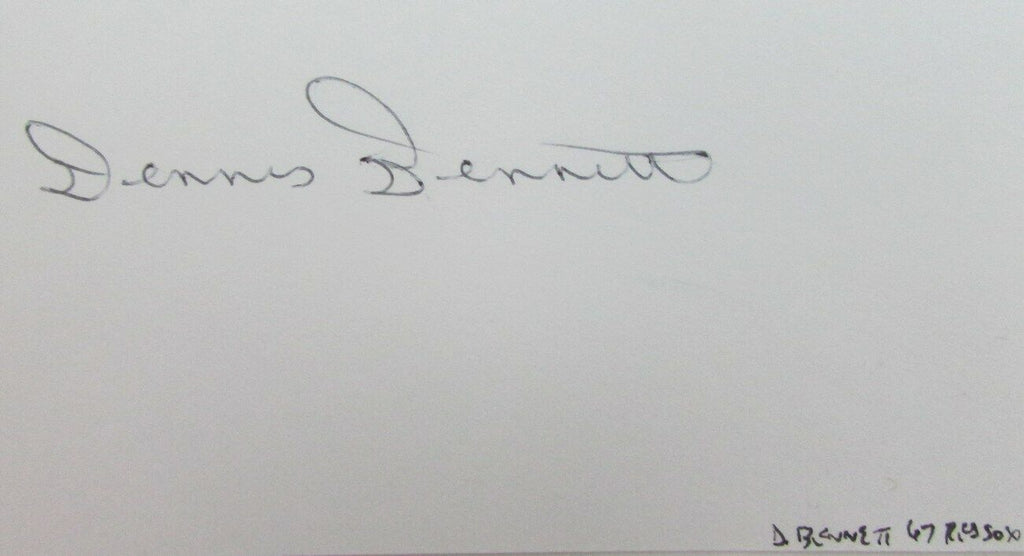 Dennis Bennett
D. BENNETT 67 RED SOX